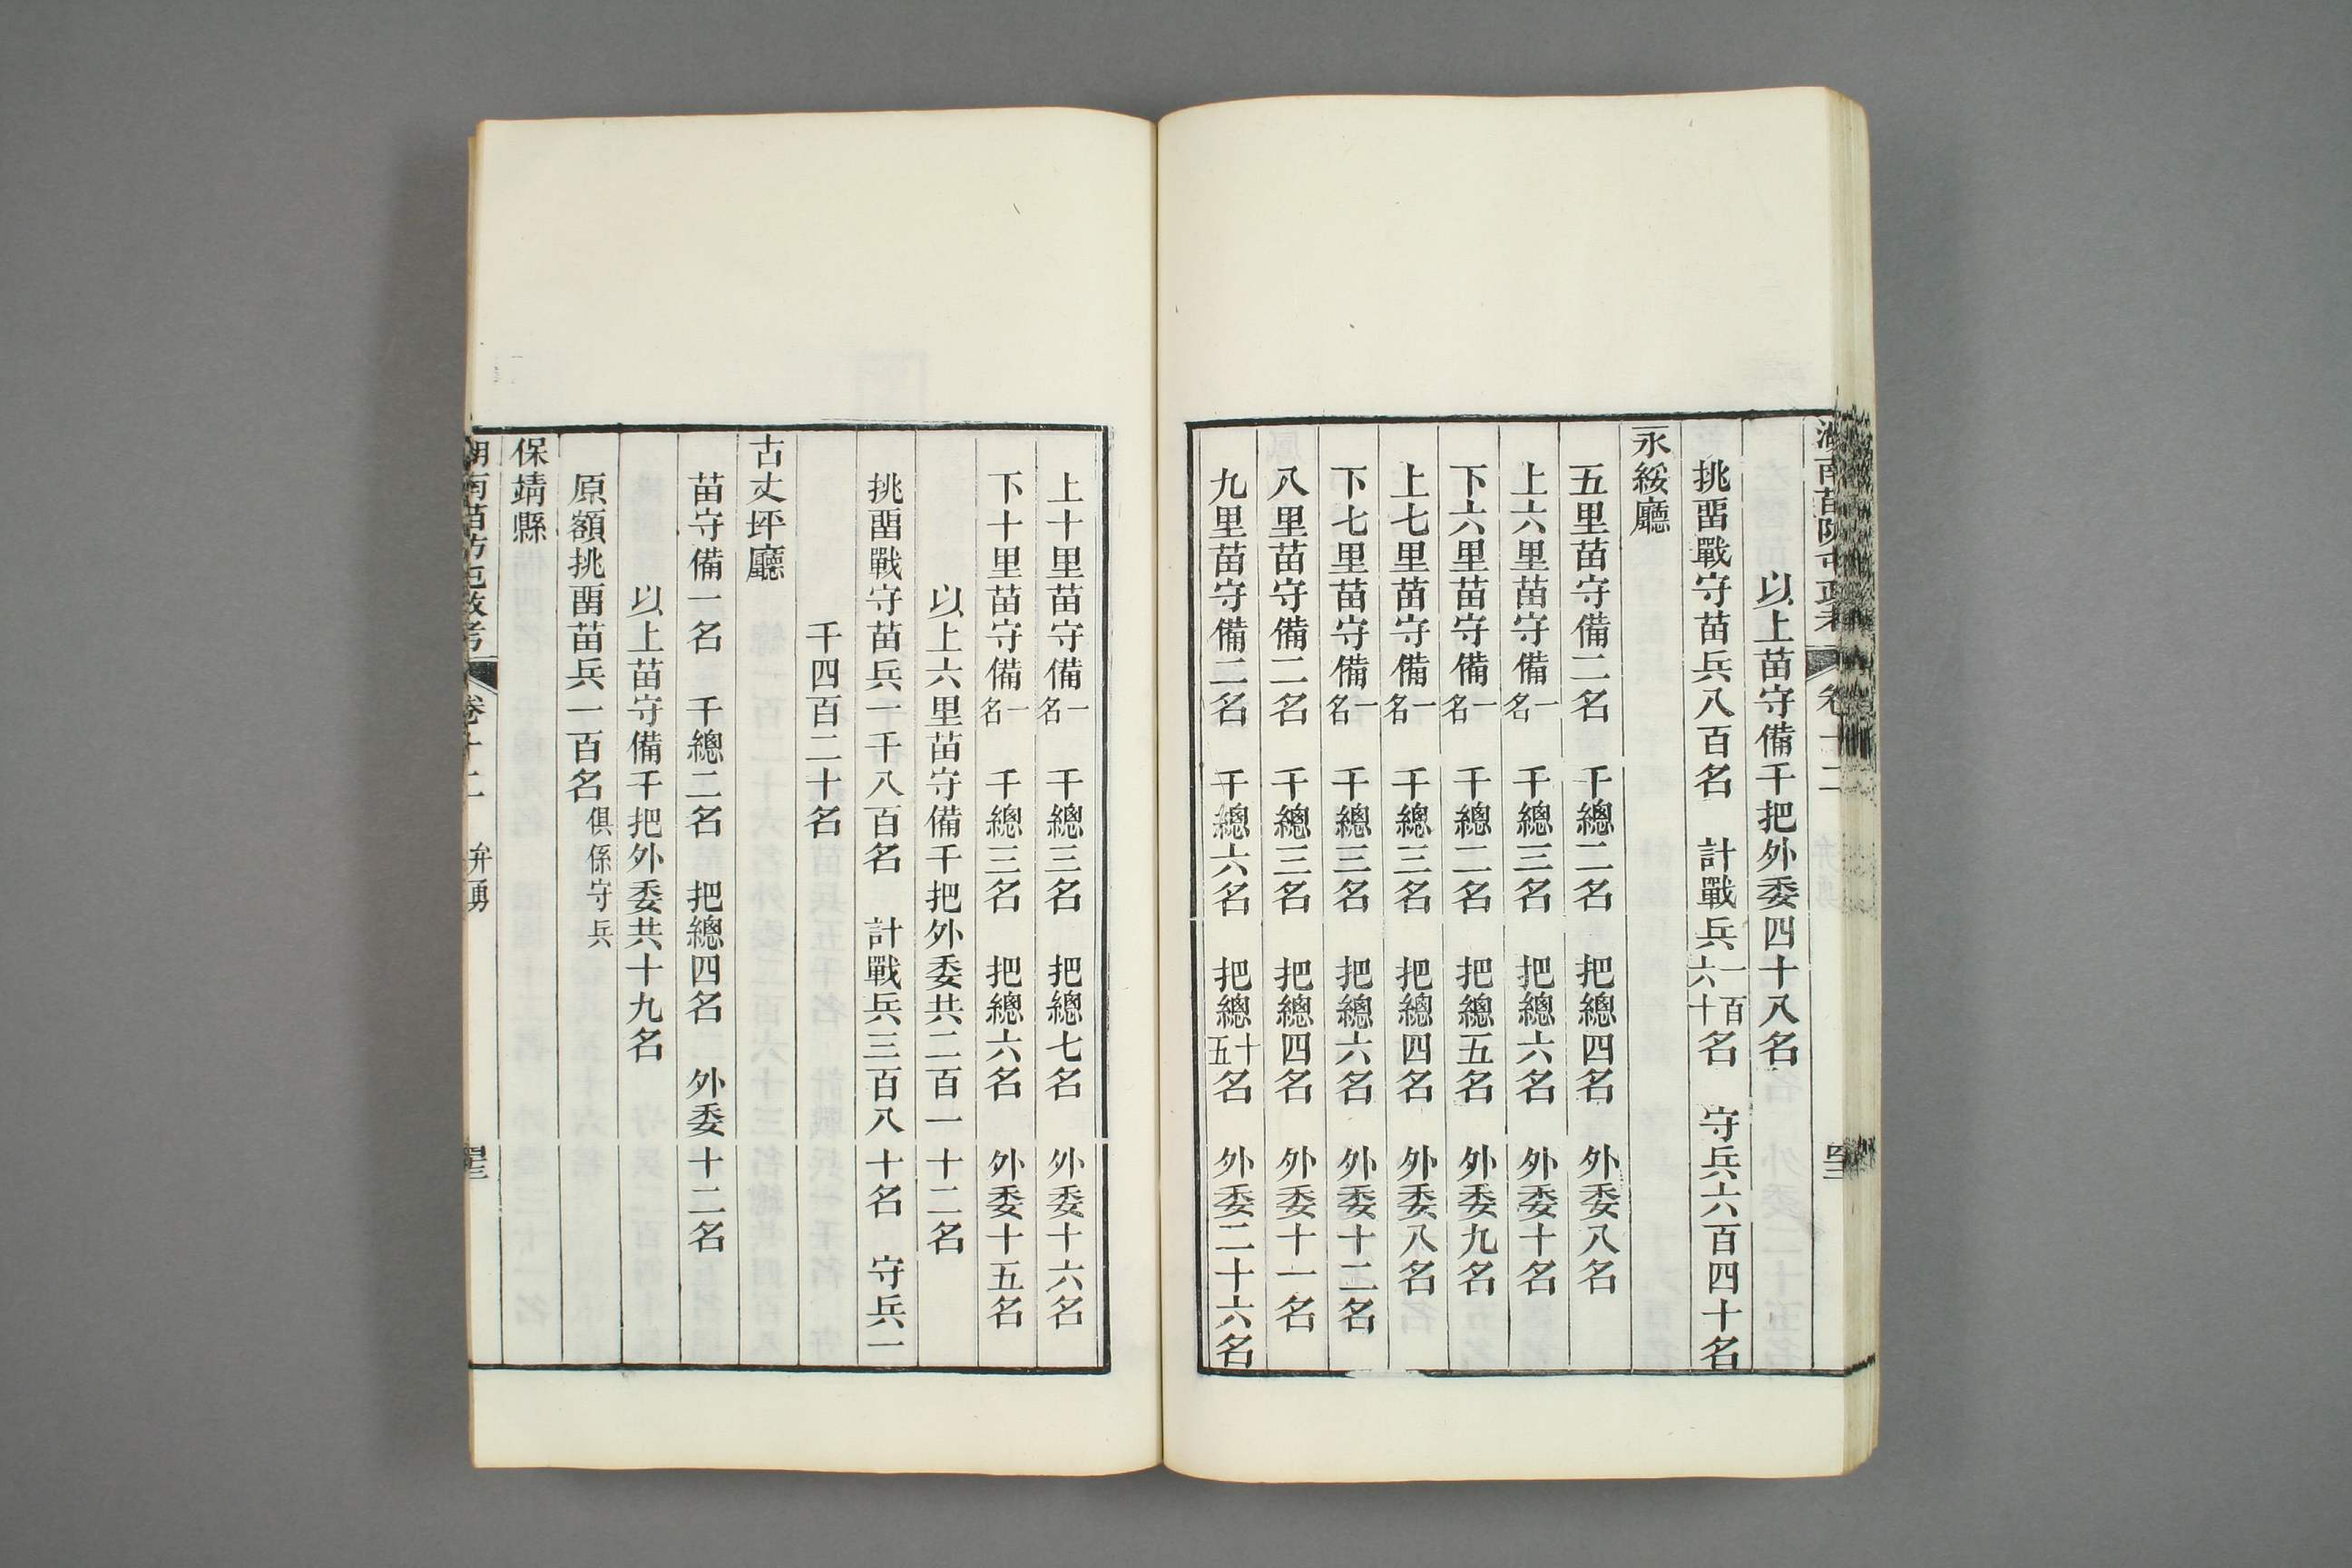 湖南苗防屯政考 卷十二 弁勇
以上苗守備千把外委四十八名
挑畱戰守苗兵八百名 計戰兵一百六十名 守兵六百四十名
永綏廳
五里苗守備二名 千總二名 把總四名 外委八名
上六里苗守備一名 千總三名 把總六名 外委十名
下六里苗守備一名 千總二名 把總五名 外委九名
上七里苗守備一名 千總三名 把總四名 外委八名
下七里苗守備一名 千總三名 把總六名 外委十二名
八里苗守備二名 千總三名 把總四名 外委十一名
九里苗守備二名 千總六名 把總十五名 外委二十六名
上十里苗守備一名 千總三名 把總七名 外委十六名
下十里苗守備一名 千總三名 把總六名 外委十五名
以上六里苗守備千把外委共二百一十二名
挑畱戰守苗兵一千八百名 計戰兵三百八十名 守兵一
千四百二十名
古丈坪廳
苗守備一名 千總二名 把總四名 外委十二名
以上苗守備千把外委共十九名
原額挑畱苗兵一百名俱係守兵
保靖縣
湖南苗防屯政考 卷十二 弁勇